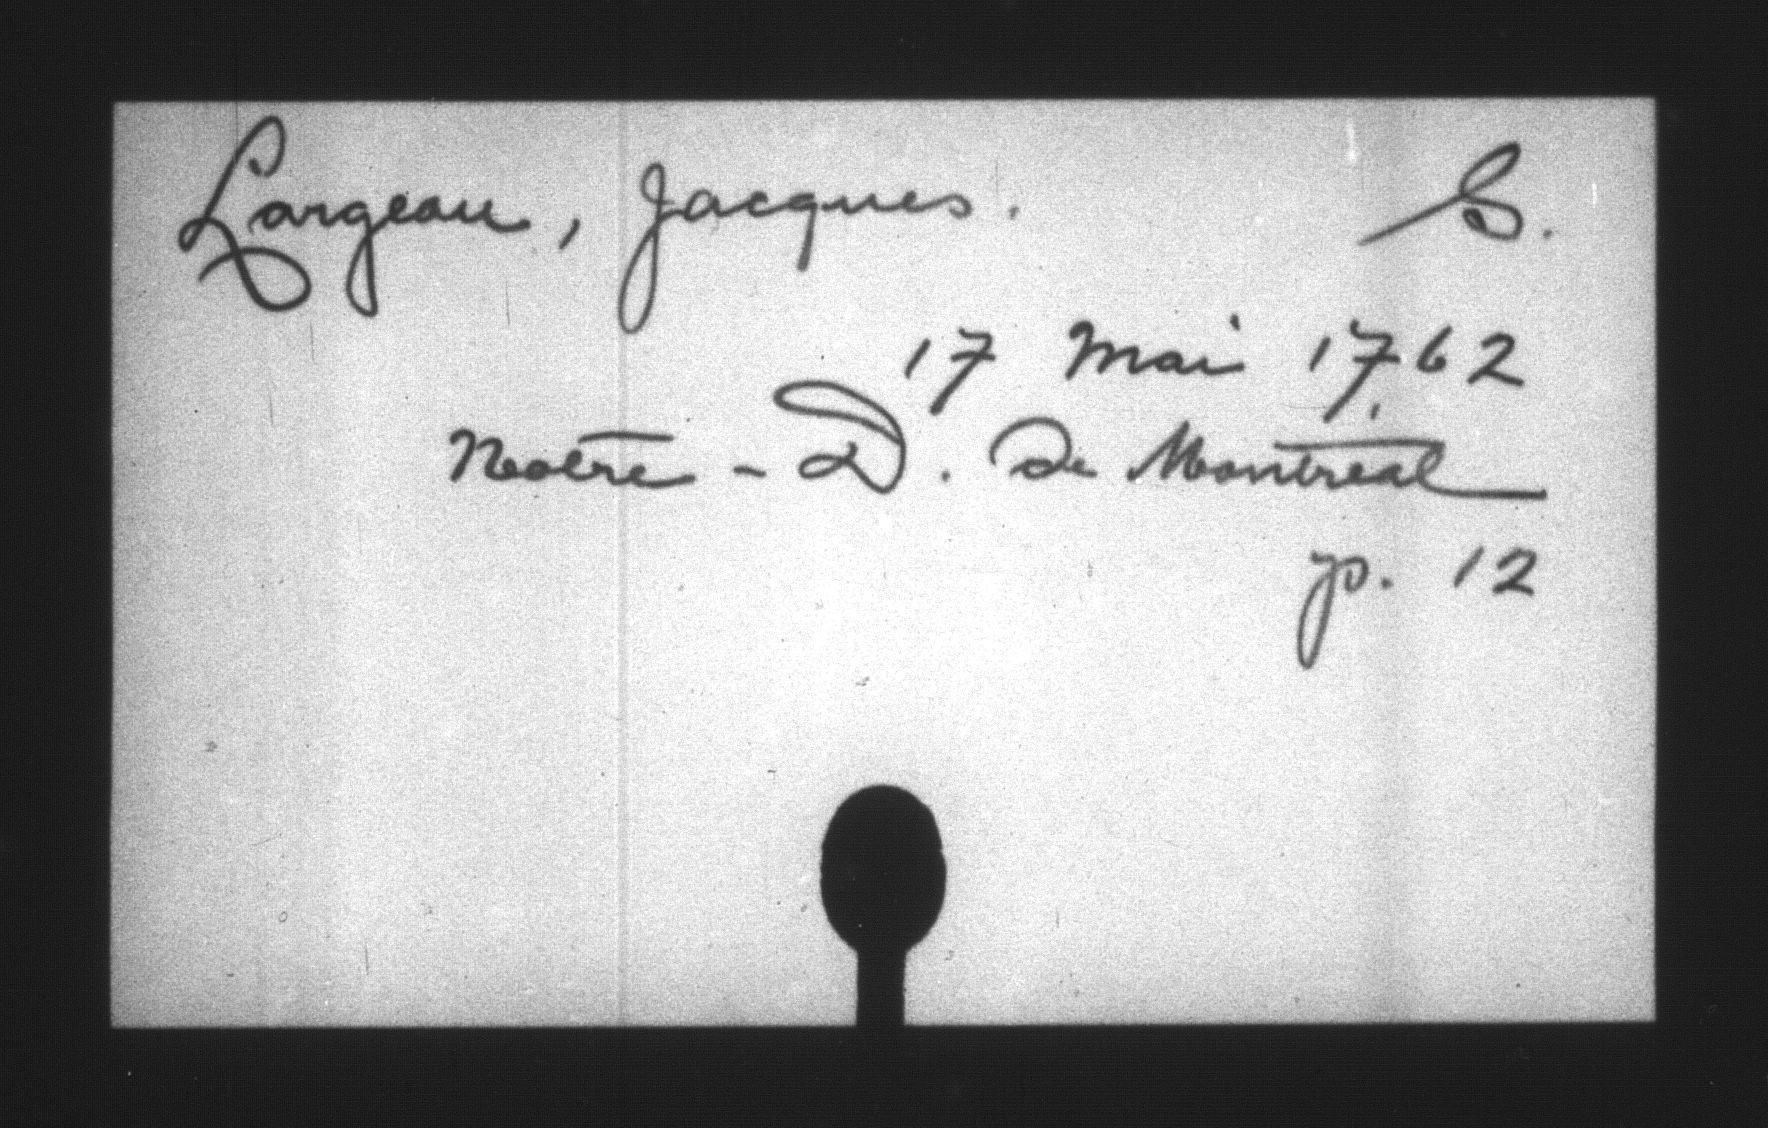 Largeau, Jacques. S.
17 Mai 1762
Notre-D. de Montréal
p. 12